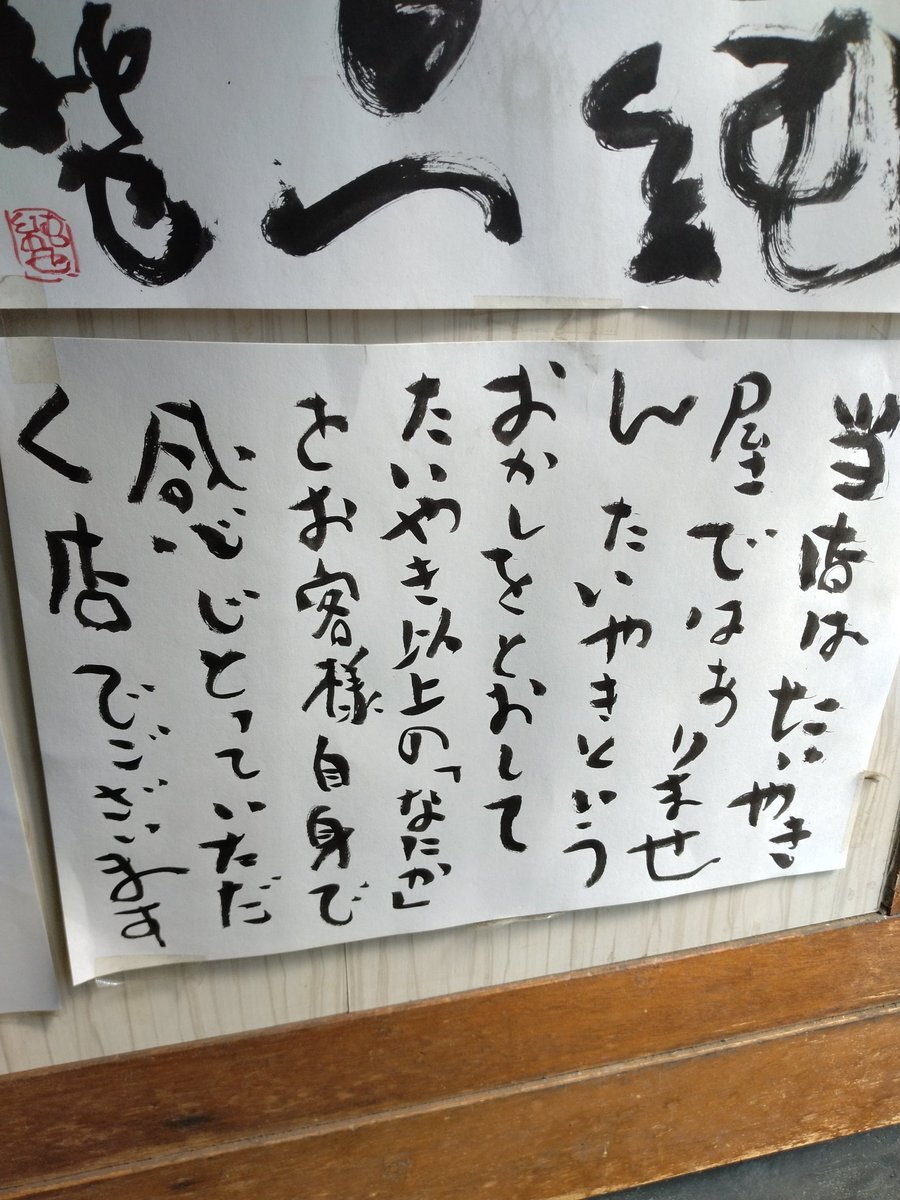 純
一
当店はたいやき
屋ではありませ
ん たいやきという
おかしをとおして
たいやき以上の「なにか」
をお客様自身で
感じじとっていただ
く店でございます